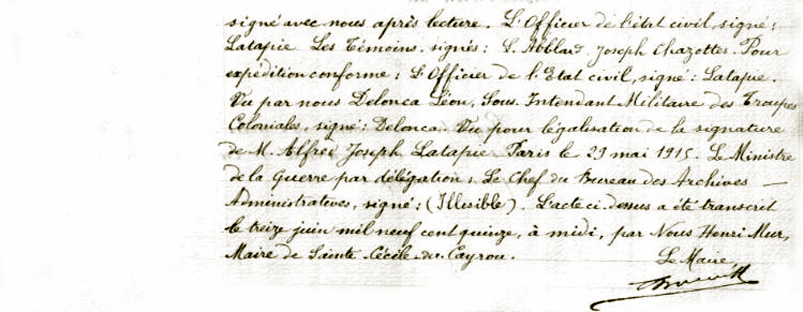 signé avec nous après lecture. L'Officier de l'état civil, signé:
Latapie. Les Témoins, signés: L. Abblard. Joseph Chazottes. Pour
expédition conforme: L'Officier de l'Etat civil, signé: Latapie.
Vu par nous Delonca Léon, Sous Intendant Militaire des Troupes
Coloniales, signé: Delonca. Vu pour légalisation de la signature
de M. Alfred Joseph Latapie. Paris le 29 mai 1915. Le Ministre
de la Guerre par délégation: Le Chef du Bureau des Archives —
Administratives, signé: (Illisible). L'acte ci-dessus a été transcrit
le treize juin mil neuf cent quinze, à midi, par Nous Henri Mur,
Maire de Sainte Cécile du Cayrou.
Le Maire,